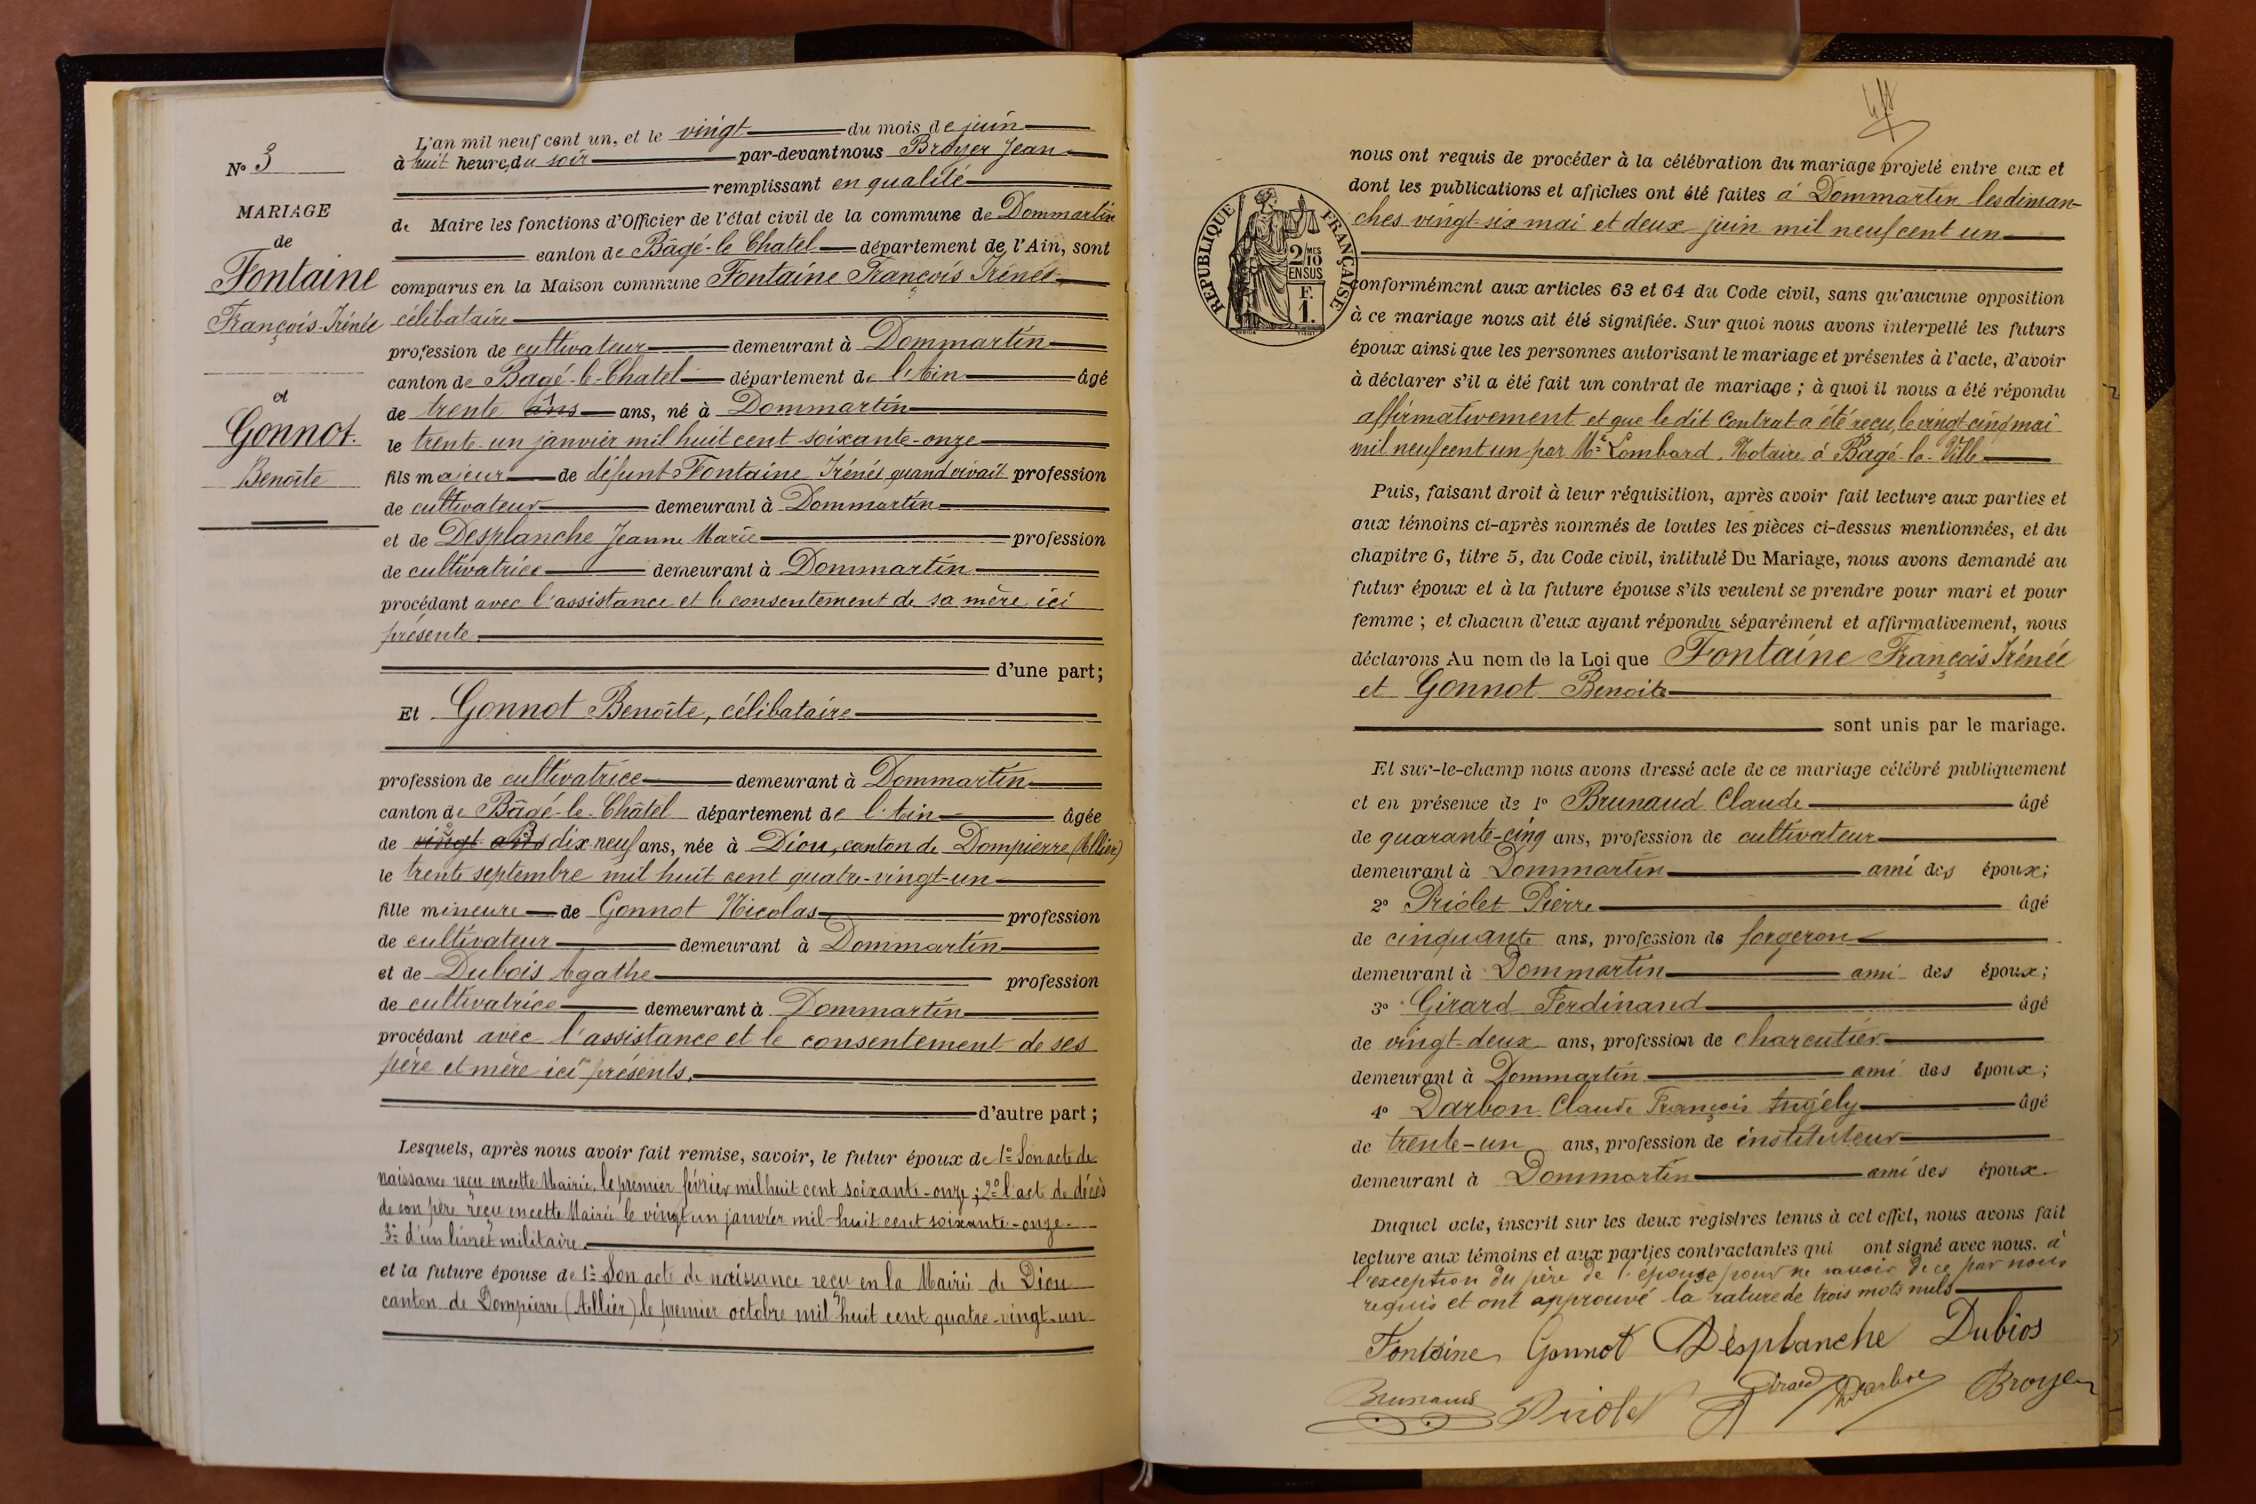 N° 3
MARIAGE
de
Fontaine
François-Irénée
et
Gonnot.
Benoîte
L'an mil neuf cent un, et le vingt du mois de juin
à huit heure, du soir par-devant nous Broyer Jean
remplissant en qualité
de Maire les fonctions d'Officier de l'état civil de la commune de Dommartin
canton de Bâgé-le Chatel département de l'Ain, sont
comparus en la Maison commune Fontaine François Irénée
célibataire
profession de cultivateur demeurant à Dommartin
canton de Bagé-le-Chatel département de l'Ain âgé
de trente ans ans, né à Dommartin
le trente-un janvier mil huit cent soixante-onze
fils majeur de défunt Fontaine Irénée, quand vivait profession
de cultivateur demeurant à Dommartin
et de Desplanche Jeanne Marie profession
de cultivatrice demeurant à Dommartin
procédant avec l'assistance et le consentement de sa mère ici
présente
d'une part;
Et Gonnot Benoîte, célibataire
profession de cultivatrice demeurant à Dommartin
canton de Bâgé-le-Châtel département de l'Ain âgée
de vingt ans dix neuf ans, née à Diou, canton de Dompierre (Allier)
le trente septembre mil huit cent quatre-vingt-un
fille mineure de Gonnot Nicolas profession
de cultivateur demeurant à Dommartin
et de Dubois Agathe profession
de cultivatrice demeurant à Dommartin
procédant avec l'assistance et le consentement de ses
père et mère ici présents.
d'autre part;
Lesquels, après nous avoir fait remise, savoir, le futur époux de 1° Son acte de
naissance reçu en cette Mairie, le premier février mil huit cent soixante-onze; 2° l'acte de décès
de son père reçu en cette Mairie le vingt un janvier mil-huit cent soixante-onze.
3° d'un livret militaire.
et la future épouse de 1° Son acte de naissance reçu en la Mairie de Diou
canton de Dompierre (Allier) le premier octobre mil huit cent quatre-vingt-un
nous ont requis de procéder à la célébration du mariage projeté entre eux et
dont les publications et affiches ont été faites à Dommartin les diman-
ches vingt-six mai et deux juin mil neuf cent un
RÉPUBLIQUE FRANÇAISE
2/10 MES
EN SUS
F.
1.
conformément aux articles 63 et 64 du Code civil, sans qu'aucune opposition
à ce mariage nous ait été signifiée. Sur quoi nous avons interpellé les futurs
époux ainsi que les personnes autorisant le mariage et présentes à l'acte, d'avoir
à déclarer s'il a été fait un contrat de mariage; à quoi il nous a été répondu
affirmativement et que le dit contrat a été reçu, le vingt-cinq mai
mil neuf cent un par Me Lombard, Notaire à Bâgé-la-Ville
Puis, faisant droit à leur réquisition, après avoir fait lecture aux parties et
aux témoins ci-après nommés de toutes les pièces ci-dessus mentionnées, et du
chapitre 6, titre 5, du Code civil, intitulé Du Mariage, nous avons demandé au
futur époux et à la future épouse s'ils veulent se prendre pour mari et pour
femme; et chacun d'eux ayant répondu séparément et affirmativement, nous
déclarons Au nom de la Loi que Fontaine François Irénée
et Gonnot Benoite
sont unis par le mariage.
Et sur-le-champ nous avons dressé acte de ce mariage célébré publiquement
et en présence de 1° Brunaud Claude âgé
de quarante-cinq ans, profession de cultivateur
demeurant à Dommartin ami des époux;
2° Priolet Pierre âgé
de cinquante ans, profession de forgeron
demeurant à Dommartin ami des époux;
3° Girard Ferdinand âgé
de vingt-deux ans, profession de charcutier
demeurant à Dommartin ami des époux;
4° Darbon Claude François Angély âgé
de trente-un ans, profession de instituteur
demeurant à Dommartin ami des époux.
Duquel acte, inscrit sur les deux registres tenus à cet effet, nous avons fait
lecture aux témoins et aux parties contractantes qui ont signé avec nous. à
l'exception du père de l'épouse pour ne savoir de ce par nous
requis et ont approuvé la rature de trois mots nuls
Fontaine Gonnot Désplanche Dubios
Brunaud Priolet Girard Darbon Broyer